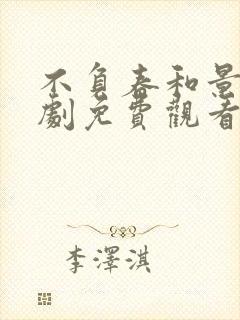 不負春和景
劇免費觀看
李澤淇